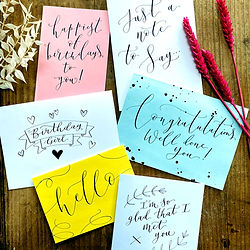 happiest
of
birthdays
to
you!
Just a
note
to
Say
Birthday
Girl
Congratulations,
Well done
you!
hello
I'm so
glad that I
met
you
x